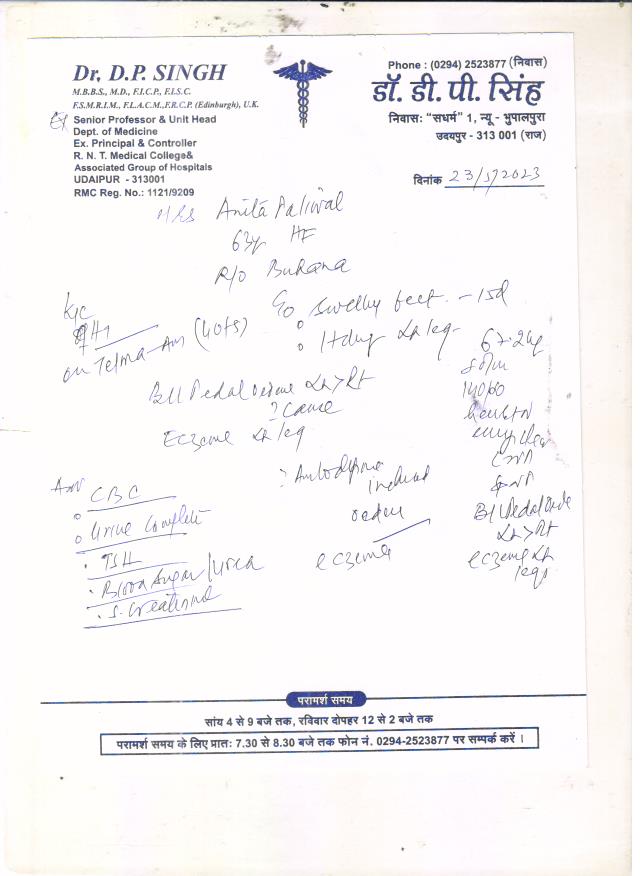 Dr. D.P. SINGH
M.B.B.S., M.D., F.I.C.P., F.I.S.C.
F.S.M.R.I.M., F.L.A.C.M.,F.R.C.P. (Edinburgh), U.K.
Ex Senior Professor & Unit Head
Dept. of Medicine
Ex. Principal & Controller
R. N. T. Medical College&
Associated Group of Hospitals
UDAIPUR - 313001
RMC Reg. No.: 1121/9209
Phone : (0294) 2523877 (निवास)
डॉ. डी. पी. सिंह
निवास: “सधर्म” 1, न्यू - भुपालपुरा
उदयपुर - 313 001 (राज)
दिनांक 23/1/2023
Mrs Anita Paliwal
63y HF
R/O
K/C
HT
on Telma-Am (40+5)
C/o swelling feet - 15d
Itching Lt leg
67.2kg
80/m
140/80
B/L Pedal oedema Lt > Rt
? Cause
Eczema Lt leg
CBC
Urine Complete
TSH
Blood Sugar / Urea
S. Creatinine
? Amlodipine
induced
oedema
eczema
B/L Pedal Oedema
Lt > Rt
eczema Lt
legs
परामर्श समय
सांय 4 से 9 बजे तक, रविवार दोपहर 12 से 2 बजे तक
परामर्श समय के लिए प्रातः 7.30 से 8.30 बजे तक फोन नं. 0294-2523877 पर सम्पर्क करें ।